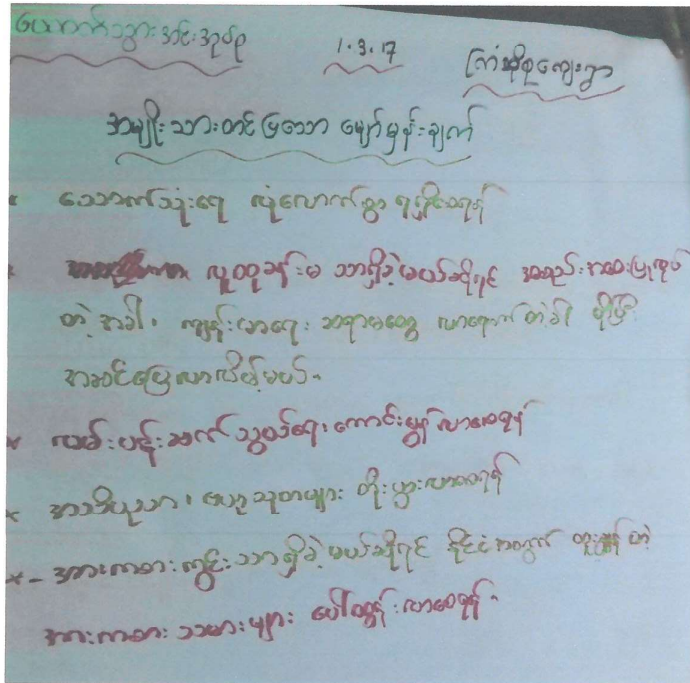 ယောက်သွားအင်းအုပ်စု 1.3.17 ကြံဆိုစုကျေးရွာ
အမျိုးသားတင်ပြသော မျှော်မှန်းချက်
သောက်သုံးရေ လုံလောက်စွာ ရရှိစေရန်
လူထုခန်းမ သာရှိခဲ့မယ်ဆိုရင် အစည်းအဝေးပြုလုပ်
တဲ့အခါ၊ ကျန်းမာရေး ဆရာမတွေ လာရောက်တဲ့ခါ ပိုပြီး
အဆင်ပြေလာလိမ့်မယ်။
လမ်းပန်းဆက်သွယ်ရေး ကောင်းမွန်လာစေရန်
အသိပညာ၊ ဗဟုသုတများ တိုးပွားလာစေရန်
အားကစားကွင်းသာရှိခဲ့မယ်ဆိုရင် နိုင်ငံအတွက် ထူးချွန်တဲ့
အားကစားသမားများ ပေါ်ထွန်းလာစေရန်။